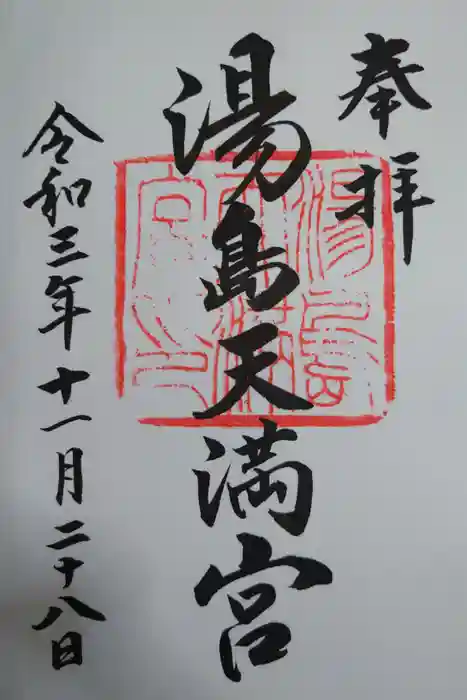 奉拝
湯島天満宮
令和三年十一月二十八日